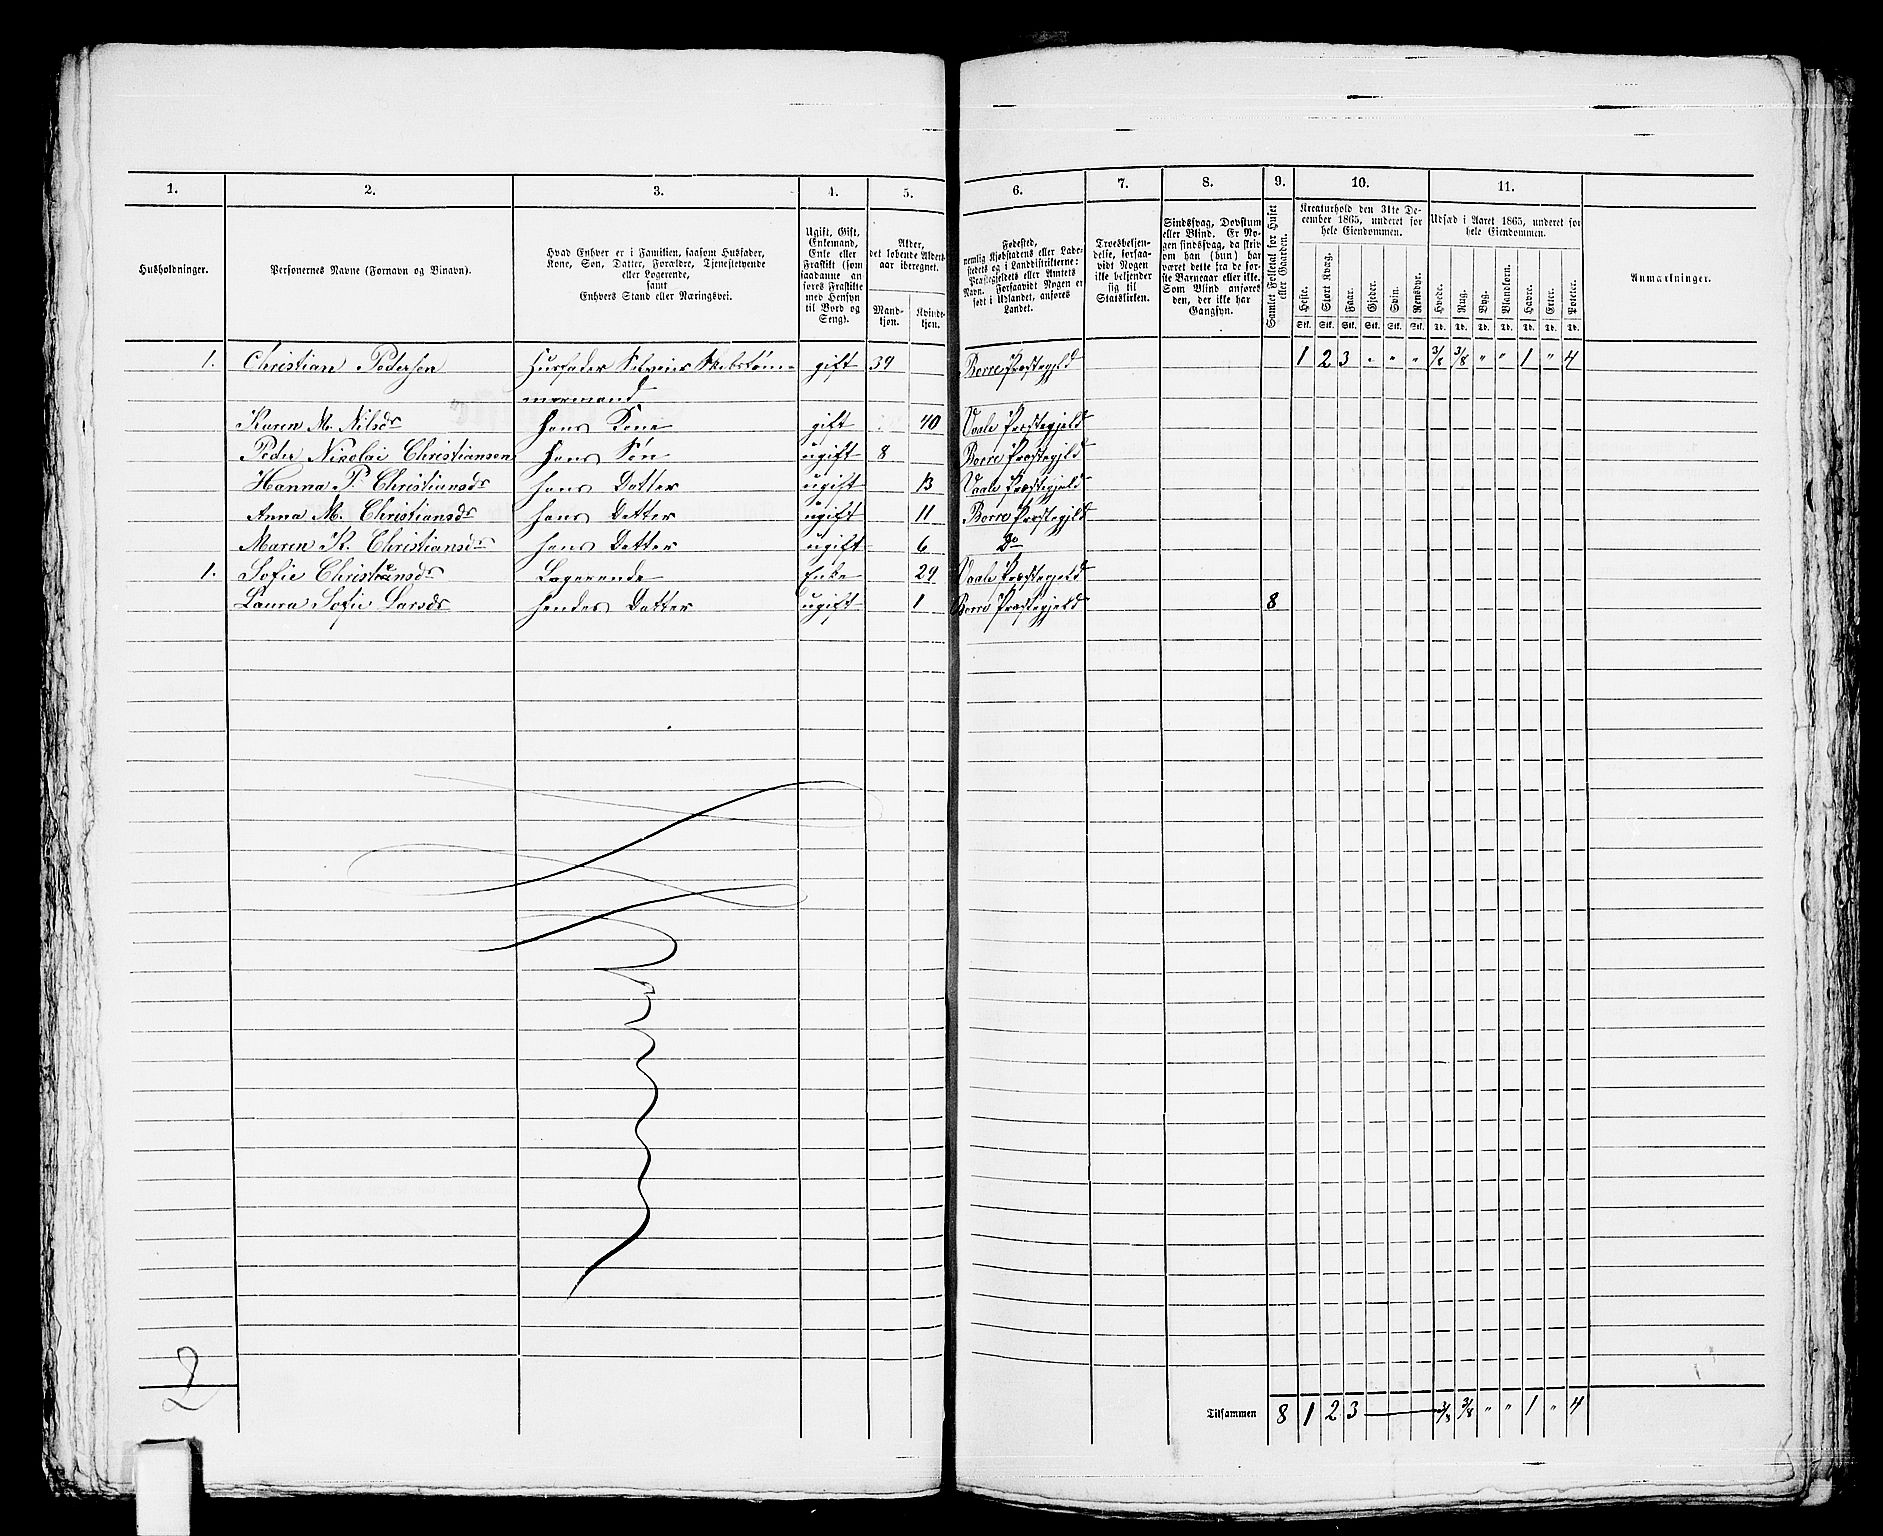 1. 2. 3. 4. 5. 6. 7. 8. 9. 10. 11.
Husholdninger.
Personernes Navne (Fornavn og Binavn).
Hvad Enhver er i Familien, saasom Husfader,
Kone, Søn, Datter, Forældre, Tjenestetyende
eller Logerende,
samt
Enhvers Stand eller Næringsvei.
Ugift, Gift,
Enkemand,
Enke eller
Fraskilt (som
saadanne an-
føres Fraskilte
med Hensyn
til Bord og
Seng).
Alder,
det løbende Alders-
aar iberegnet.
Mand-
kjøn.
Kvinde-
kjøn.
Fødested,
nemlig Kjøbstadens eller Lade-
stedets og i Landdistrikterne:
Præstegjeldets eller Amtets
Navn. Forsaavidt Nogen er
født i Udlandet, anføres
Landet.
Troesbekjen-
delse, forsaa-
vidt Nogen
ikke bekjender
sig til
Statskirken.
Sindssvag, Døvstum
eller Blind. Er No-
gen sindssvag, da skriv
om han (hun) har
været dette fra de før-
ste Barneaar eller ikke.
Som Blind anføres
den, der ikke har
Gangsyn.
Samlet Folketal for Huset
eller Gaarden.
Kreaturhold den 31te De-
cember 1865, underet for
hele Eiendommen.
Heste. Stort Kvæg. Faar. Gjeder. Svin. Rensdyr.
Stk. Stk. Stk. Stk. Stk. Stk.
Udsæd i Aaret 1865, underet for
hele Eiendommen.
Hvede. Rug. Byg. Blandkorn. Havre. Erter. Poteter.
Td. Td. Td. Td. Td. Td. Td.
Anmærkninger.
1. Christian Pedersen Husfader Selveier Skibstøm- gift 39 Borre Præstegjeld 1 2 3 " " " 3/8 " " 1 " 4
mermand
Karen M. Nilsdr hans Kone gift 40 Vaale Præstegjeld
Peder Nikolai Christiansen hans Søn ugift 8 Borre Præstegjeld
Hanna P. Christiansdr hans Datter ugift 13 Vaale Præstegjeld
Anna M. Christiansdr hans Datter ugift 11 Borre Præstegjeld
Maren K. Christiansdr hans Datter ugift 6 Do
1. Sofie Christiansdr Logerende Enke 29 Vaale Præstegjeld
Laura Sofie Larsdr hendes Datter ugift 1 Borre Præstegjeld 8
2
Tilsammen 8 1 2 3 3/8 " " 1 " 4